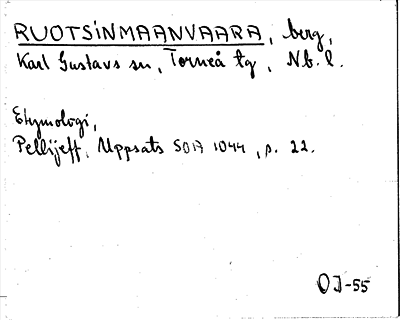 RUOTSINMAANVAARA, berg,
Karl Gustavs sn, Torneå tg, Nb. l.
Etymologi,
Pellijeff, Uppsats SOIA 1044, s. 22.
OJ-55